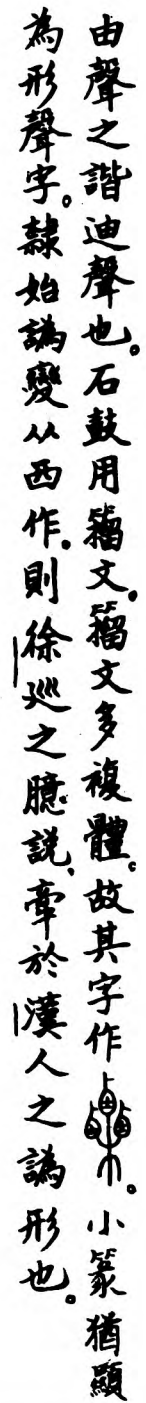 由聲之諧迪聲也。石鼓用籀文。籀文多複體。故其字作。小篆猶顯
為形聲字。隸始譌變从西作。則徐巡之臆説、牽於漢人之譌形也。